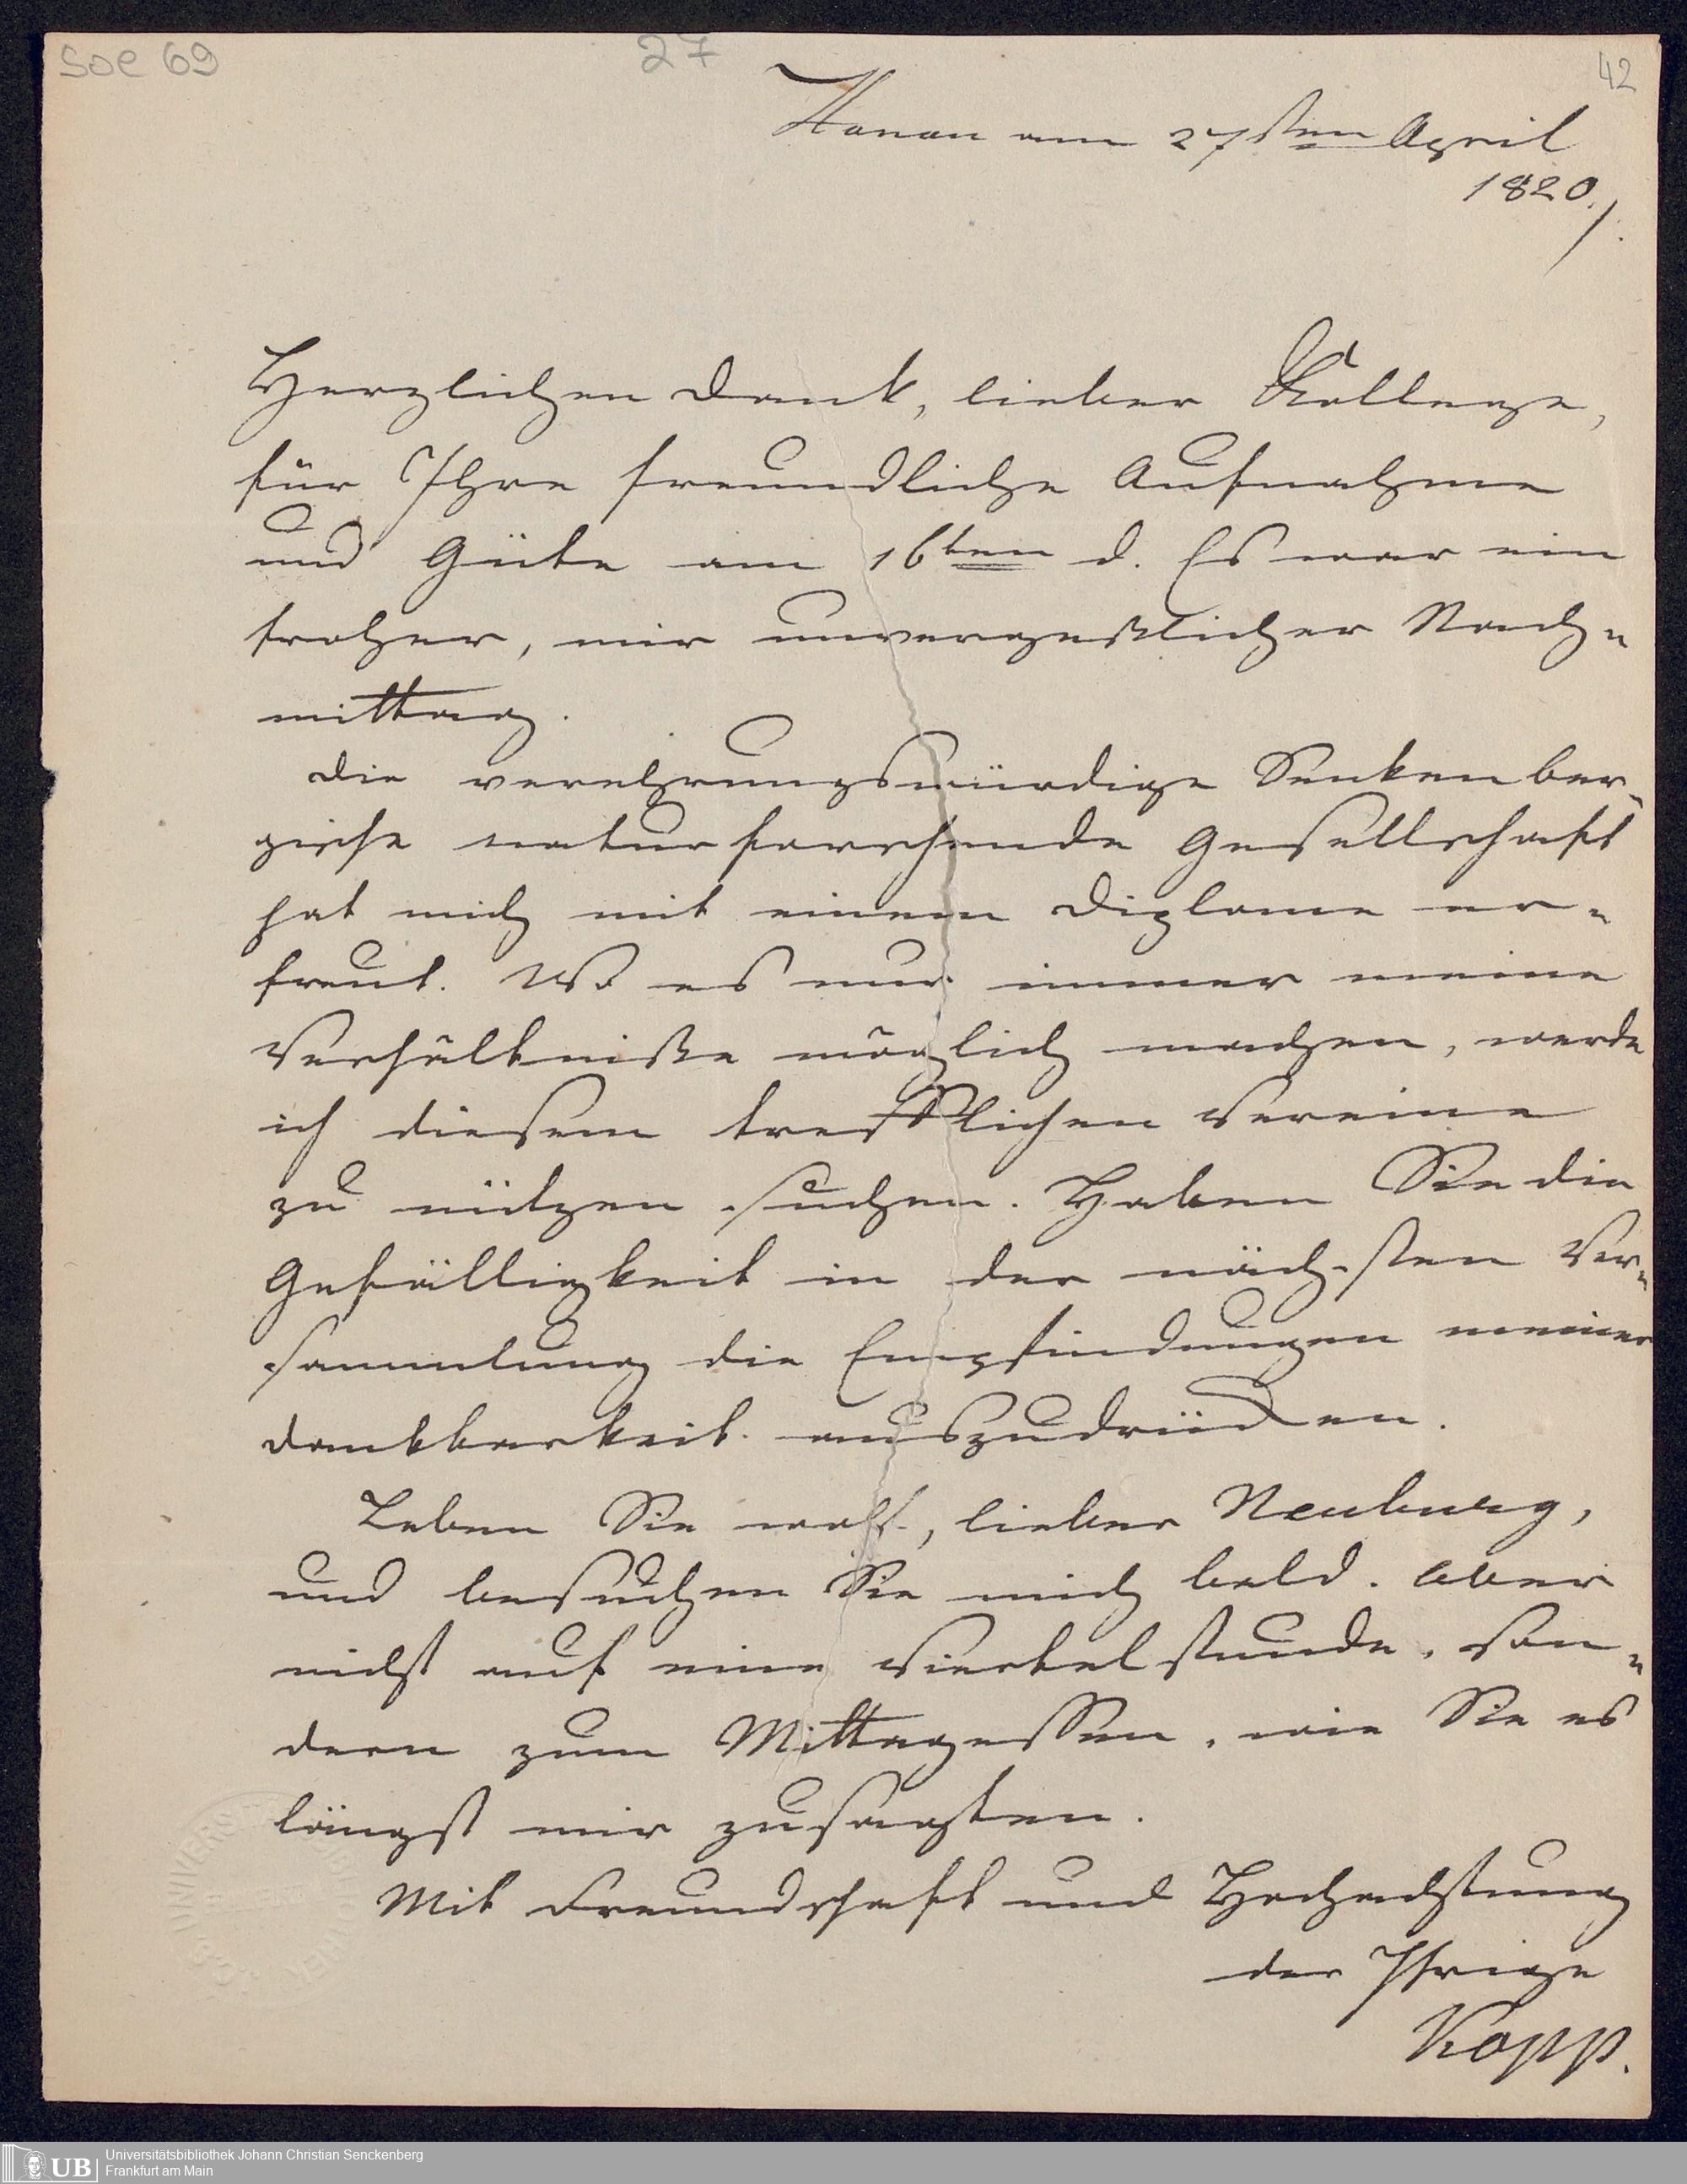 Soe 69
27
42
Hanau am 27sten April
1820./.
Herzlichen Dank, lieber Kollege,
für Ihre freundliche Aufnahme
und Güte am 16ten d. Es war ein
froher, mir unvergeßlicher Nach-
mittag.
Die verehrungswürdige Senkenber-
gische naturforschende Gesellschaft
hat mich mit einem Diplome er-
freut. Wo es nur immer meine
Verhältniße möglich machen, werde
ich diesem trefflichen Vereine
zu nützen suchen. Haben Sie die
Gefälligkeit in der nächsten Ver-
sammlung die Empfindungen meiner
Dankbarkeit auszudrücken.
Leben Sie wohl, lieber Neuburg,
und besuchen Sie mich bald. Aber
nicht auf eine Viertelstunde, son-
dern zum Mittagessen, wie Sie es
längst mir zusagten.
Mit Freundschaft und Hochachtung
der Ihrige
Kopp.
UB
Universitätsbibliothek Johann Christian Senckenberg
Frankfurt am Main